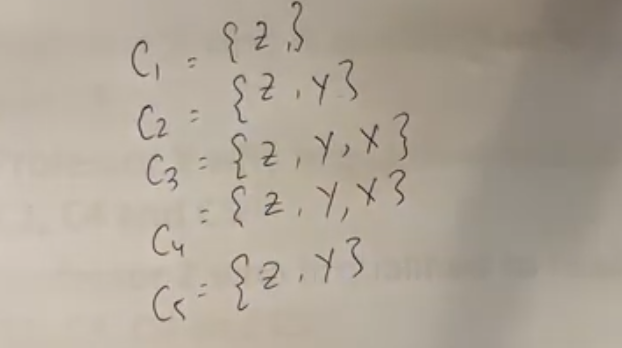 C₁ = {z,}
C₂ = {z, y}
C₃ = {z, y, x}
C₄ = {z, y, x}
C₅ = {z, y}